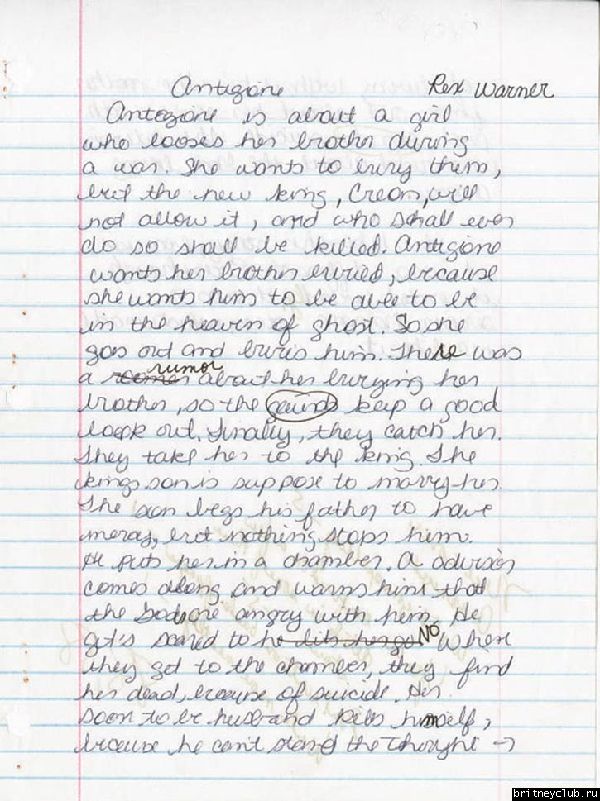 Antigione Rex Warner
Antogione is about a girl
who looses her brother during
a war. She wants to bury them,
but the new king, Creon, will
not allow it, and who schall ever
do so shall be killed. Antigione
wants her brother buried, because
she wants him to be able to be
in the heaven of ghost. So she
goes out and buries him. There was
a rumor about her burying her
brother, so the keep a good
look out. Finally, they catch her.
They take her to the king. The
kings son is suppose to marry her.
The son begs his father to have
mercy, but nothing stops him.
He puts her in a chamber. A advisor
comes along and warns him that
the Gods are angry with him. He
gt's scared to he lets her go NO When
they got to the chamber, they find
her dead, because of suicide. Her
soon to be husband kills himself,
because he can't stand the thought →
britneyclub.ru